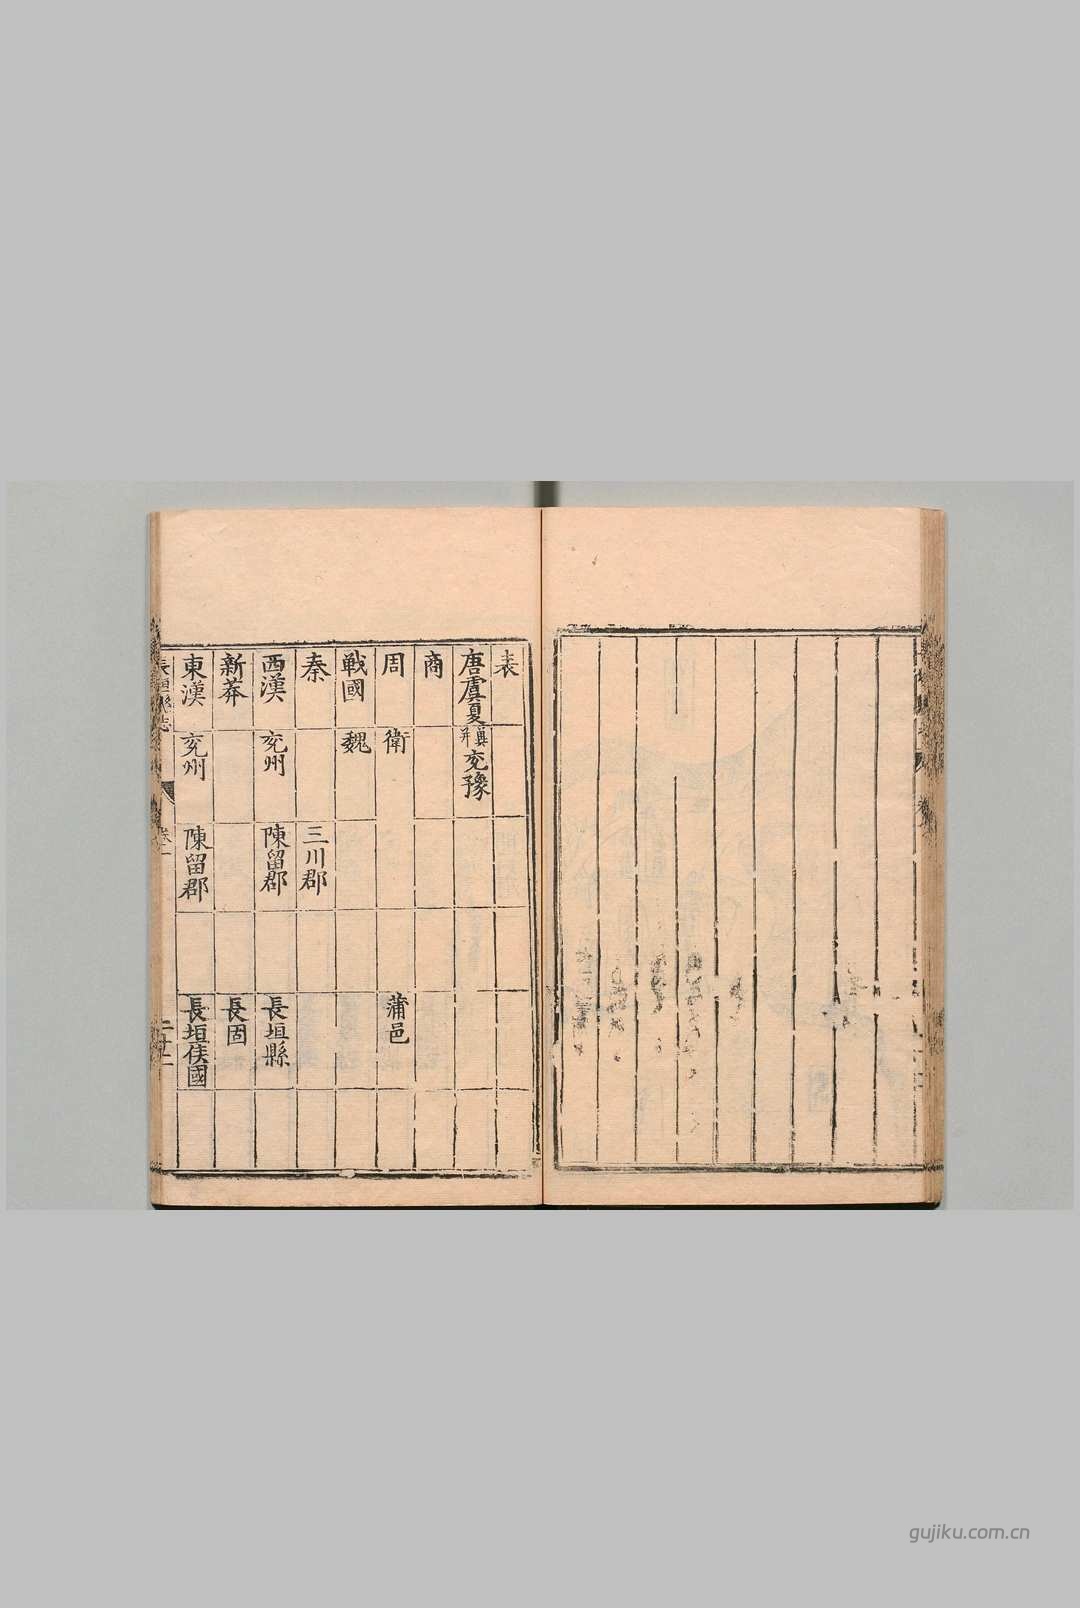 表
唐虞夏 冀并兗豫
商
周 衛 蒲邑
戰國 魏
秦 三川郡
西漢 兗州 陳留郡 長垣縣
新莽 長固
東漢 兗州 陳留郡 長垣侯國
長垣縣志 卷一
gujiku.com.cn